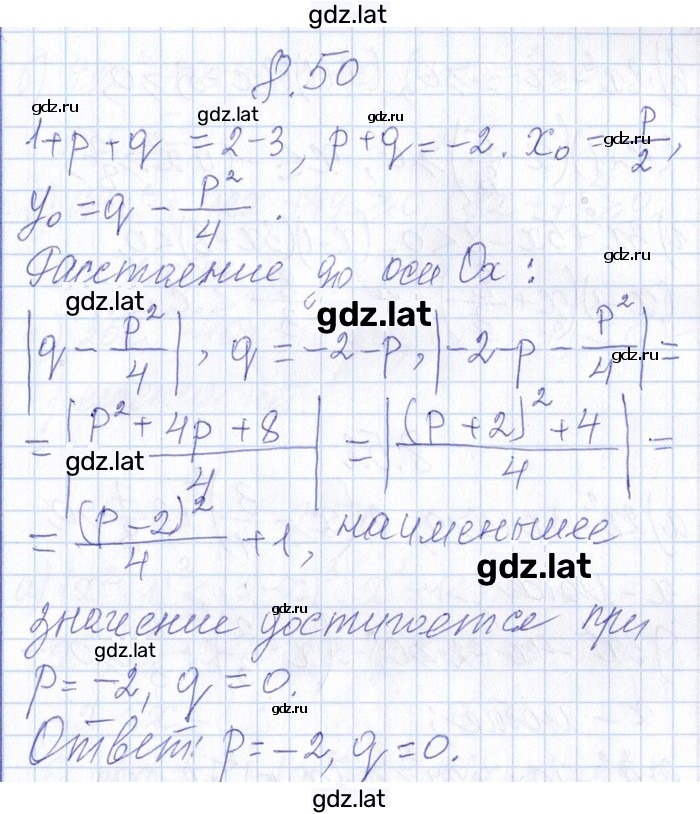 gdz.lat
8.50
gdz.ru gdz.lat gdz.ru
1+p+q = 2-3, p+q = -2. x₀ = p/2,
gdz.ru
y₀ = q - p²/4.
gdz.ru
Расстояние до оси Ox:
gdz.lat gdz.lat
|q - p²/4|, q = -2-p, |-2-p - p²/4| =
gdz.ru
= |p²+4p+8 / 4| = |(p+2)²+4 / 4| =
gdz.lat
= (p-2)²/4 + 1, наименьшее
gdz.lat
gdz.ru
значение достигается при
gdz.lat
p = -2, q = 0.
gdz.ru
Ответ: p = -2, q = 0.
gdz.lat